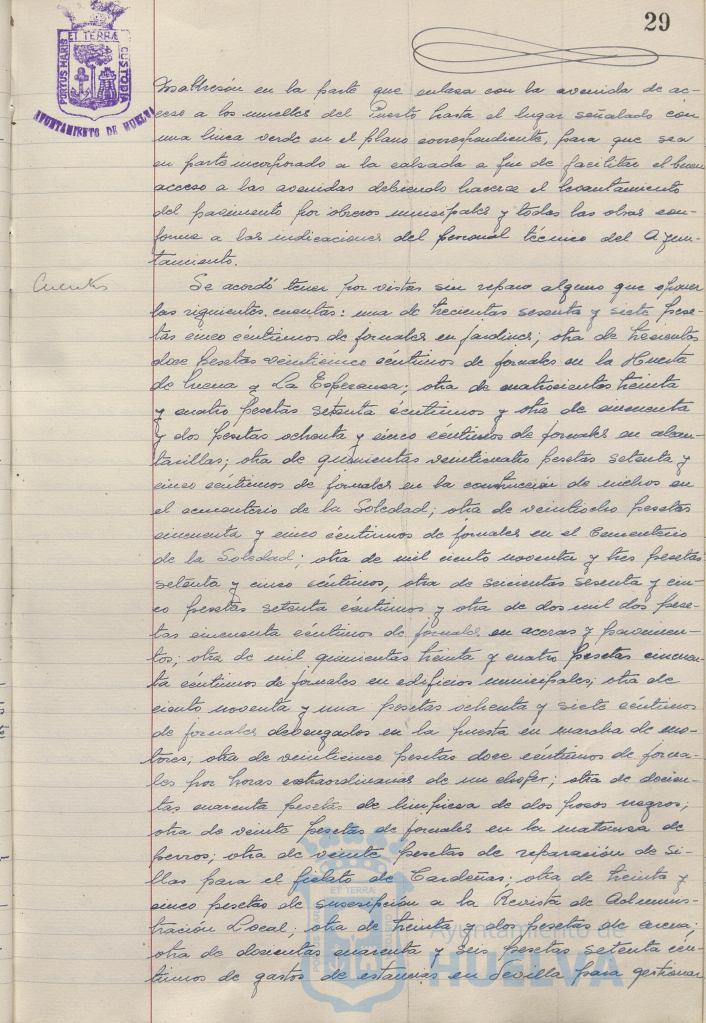 29
PORTUS MARIS ET TERRAE CUSTODIA
AYUNTAMIENTO DE HUELVA
en la parte que enlaza con la avenida de ac-
ceso a los muelles del Puerto hasta el lugar señalado con
una linea verde en el plano correspondiente, para que sea
en parte incorporado a la calzada a fin de facilitar el buen
acceso a las avenidas debiendo hacerse el levantamiento
del pavimento por obreros municipales y todas las obras con-
forme a las indicaciones del personal técnico del Ayun-
tamiento.
Cuentas
Se acordó tener por vistas sin reparo alguno que oponer
las siguientes cuentas: una de trecientas sesenta y siete pese-
tas cinco céntimos de jornales en jardines; otra de trecientas
doce pesetas veinticinco céntimos de jornales en la Huerta
de Mena y La Esperanza; otra de cuatrocientas treinta
y cuatro pesetas setenta céntimos y otra de cincuenta
y dos pesetas ochenta y cinco céntimos de jornales en alcan-
tarillas; otra de quinientas veinticuatro pesetas setenta y
cinco céntimos de jornales en la construcción de nichos en
el cementerio de la Soledad; otra de veintiocho pesetas
cincuenta y cinco céntimos de jornales en el Cementerio
de la Soledad; otra de mil ciento noventa y tres pesetas
setenta y cinco céntimos, otra de seicientas sesenta y cin-
co pesetas setenta céntimos y otra de dos mil dos pese-
tas cincuenta céntimos de jornales en aceras y pavimen-
tos; otra de mil quinientas treinta y cuatro pesetas cincuen-
ta céntimos de jornales en edificios municipales; otra de
ciento noventa y una pesetas ochenta y siete céntimos
de jornales debengados en la puesta en marcha de mo-
tores; otra de veinticinco pesetas doce céntimos de jorna-
les por horas extraordinarias de un chofer; otra de docien-
tas cuarenta pesetas de limpieza de dos posos negros;
otra de veinte pesetas de jornales en la matanza de
perros; otra de veinte pesetas de reparación de si-
llas para el fielato de Cardeñas; otra de treinta y
cinco pesetas de suscripción a la Revista de Adminis-
tración Local; otra de treinta y dos pesetas de arena;
otra de doscientas cuarenta y seis pesetas setenta cén-
timos de gastos de estancias en Sevilla para gestionar
Ayuntamiento de
HUELVA